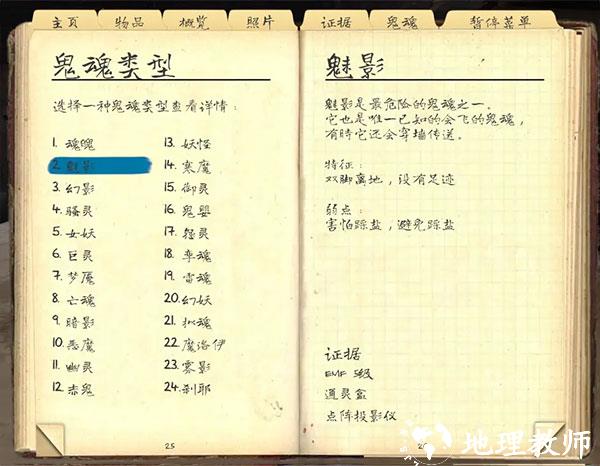 主页 物品 概览 照片 证据 鬼魂 暂停菜单
鬼魂类型
选择一种鬼魂类型查看详情:
1. 魂魄
2. 魅影
3. 幻影
4. 骚灵
5. 女妖
6. 巨灵
7. 梦魇
8. 亡魂
9. 暗影
10. 恶魔
11. 幽灵
12. 赤鬼
13. 妖怪
14. 寒魔
15. 御灵
16. 鬼婴
17. 怨灵
18. 孪魂
19. 雷魂
20. 幻妖
21. 拟魂
22. 魔洛伊
23. 雾影
24. 刹耶
25
魅影
魅影是最危险的鬼魂之一.
它也是唯一已知的会飞的鬼魂,
有时它还会穿墙传送.
特征:
双脚离地, 没有足迹
弱点:
害怕踩盐, 避免踩盐
证据
EMF 5级
通灵盒
点阵投影仪
地理教师